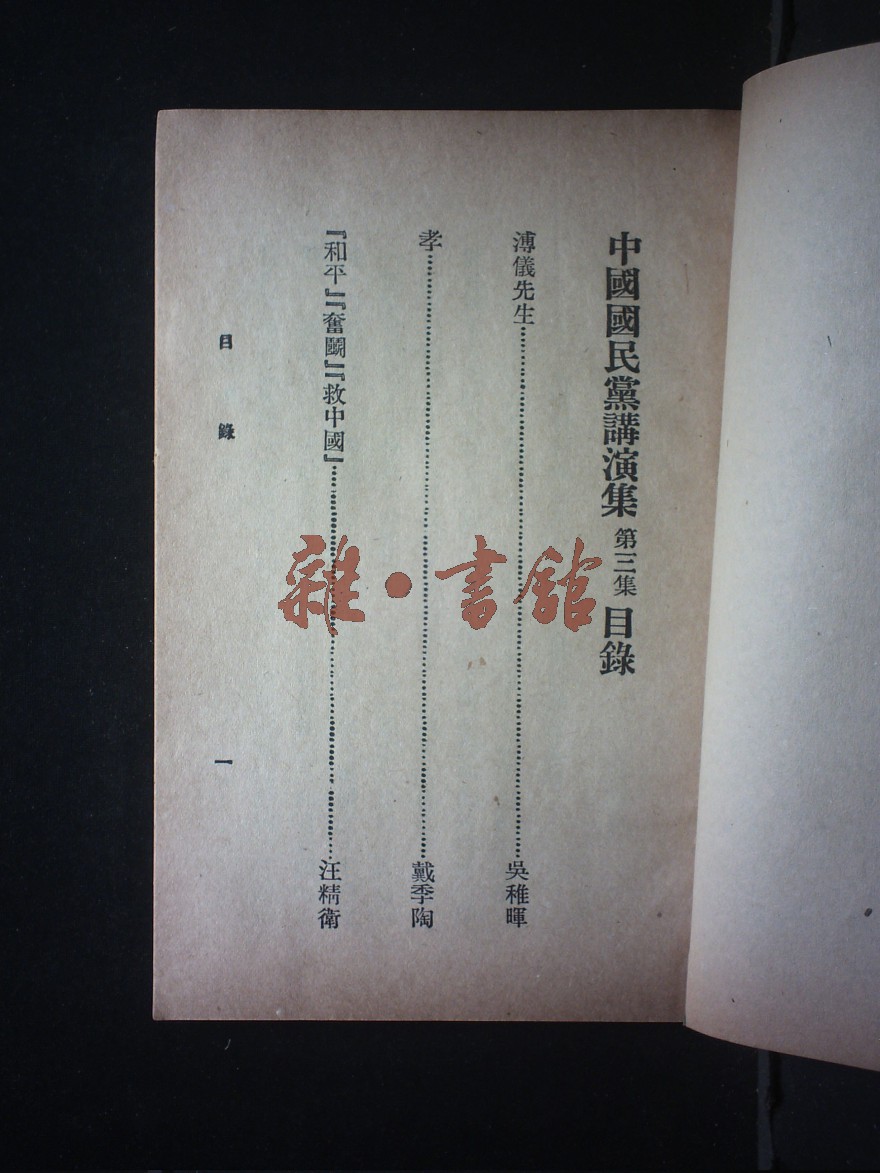 中國國民黨講演集 第三集 目錄
溥儀先生…………吳稚暉
孝…………戴季陶
『和平』『奮鬭』『救中國』…………汪精衛
目錄 一
雜·書館